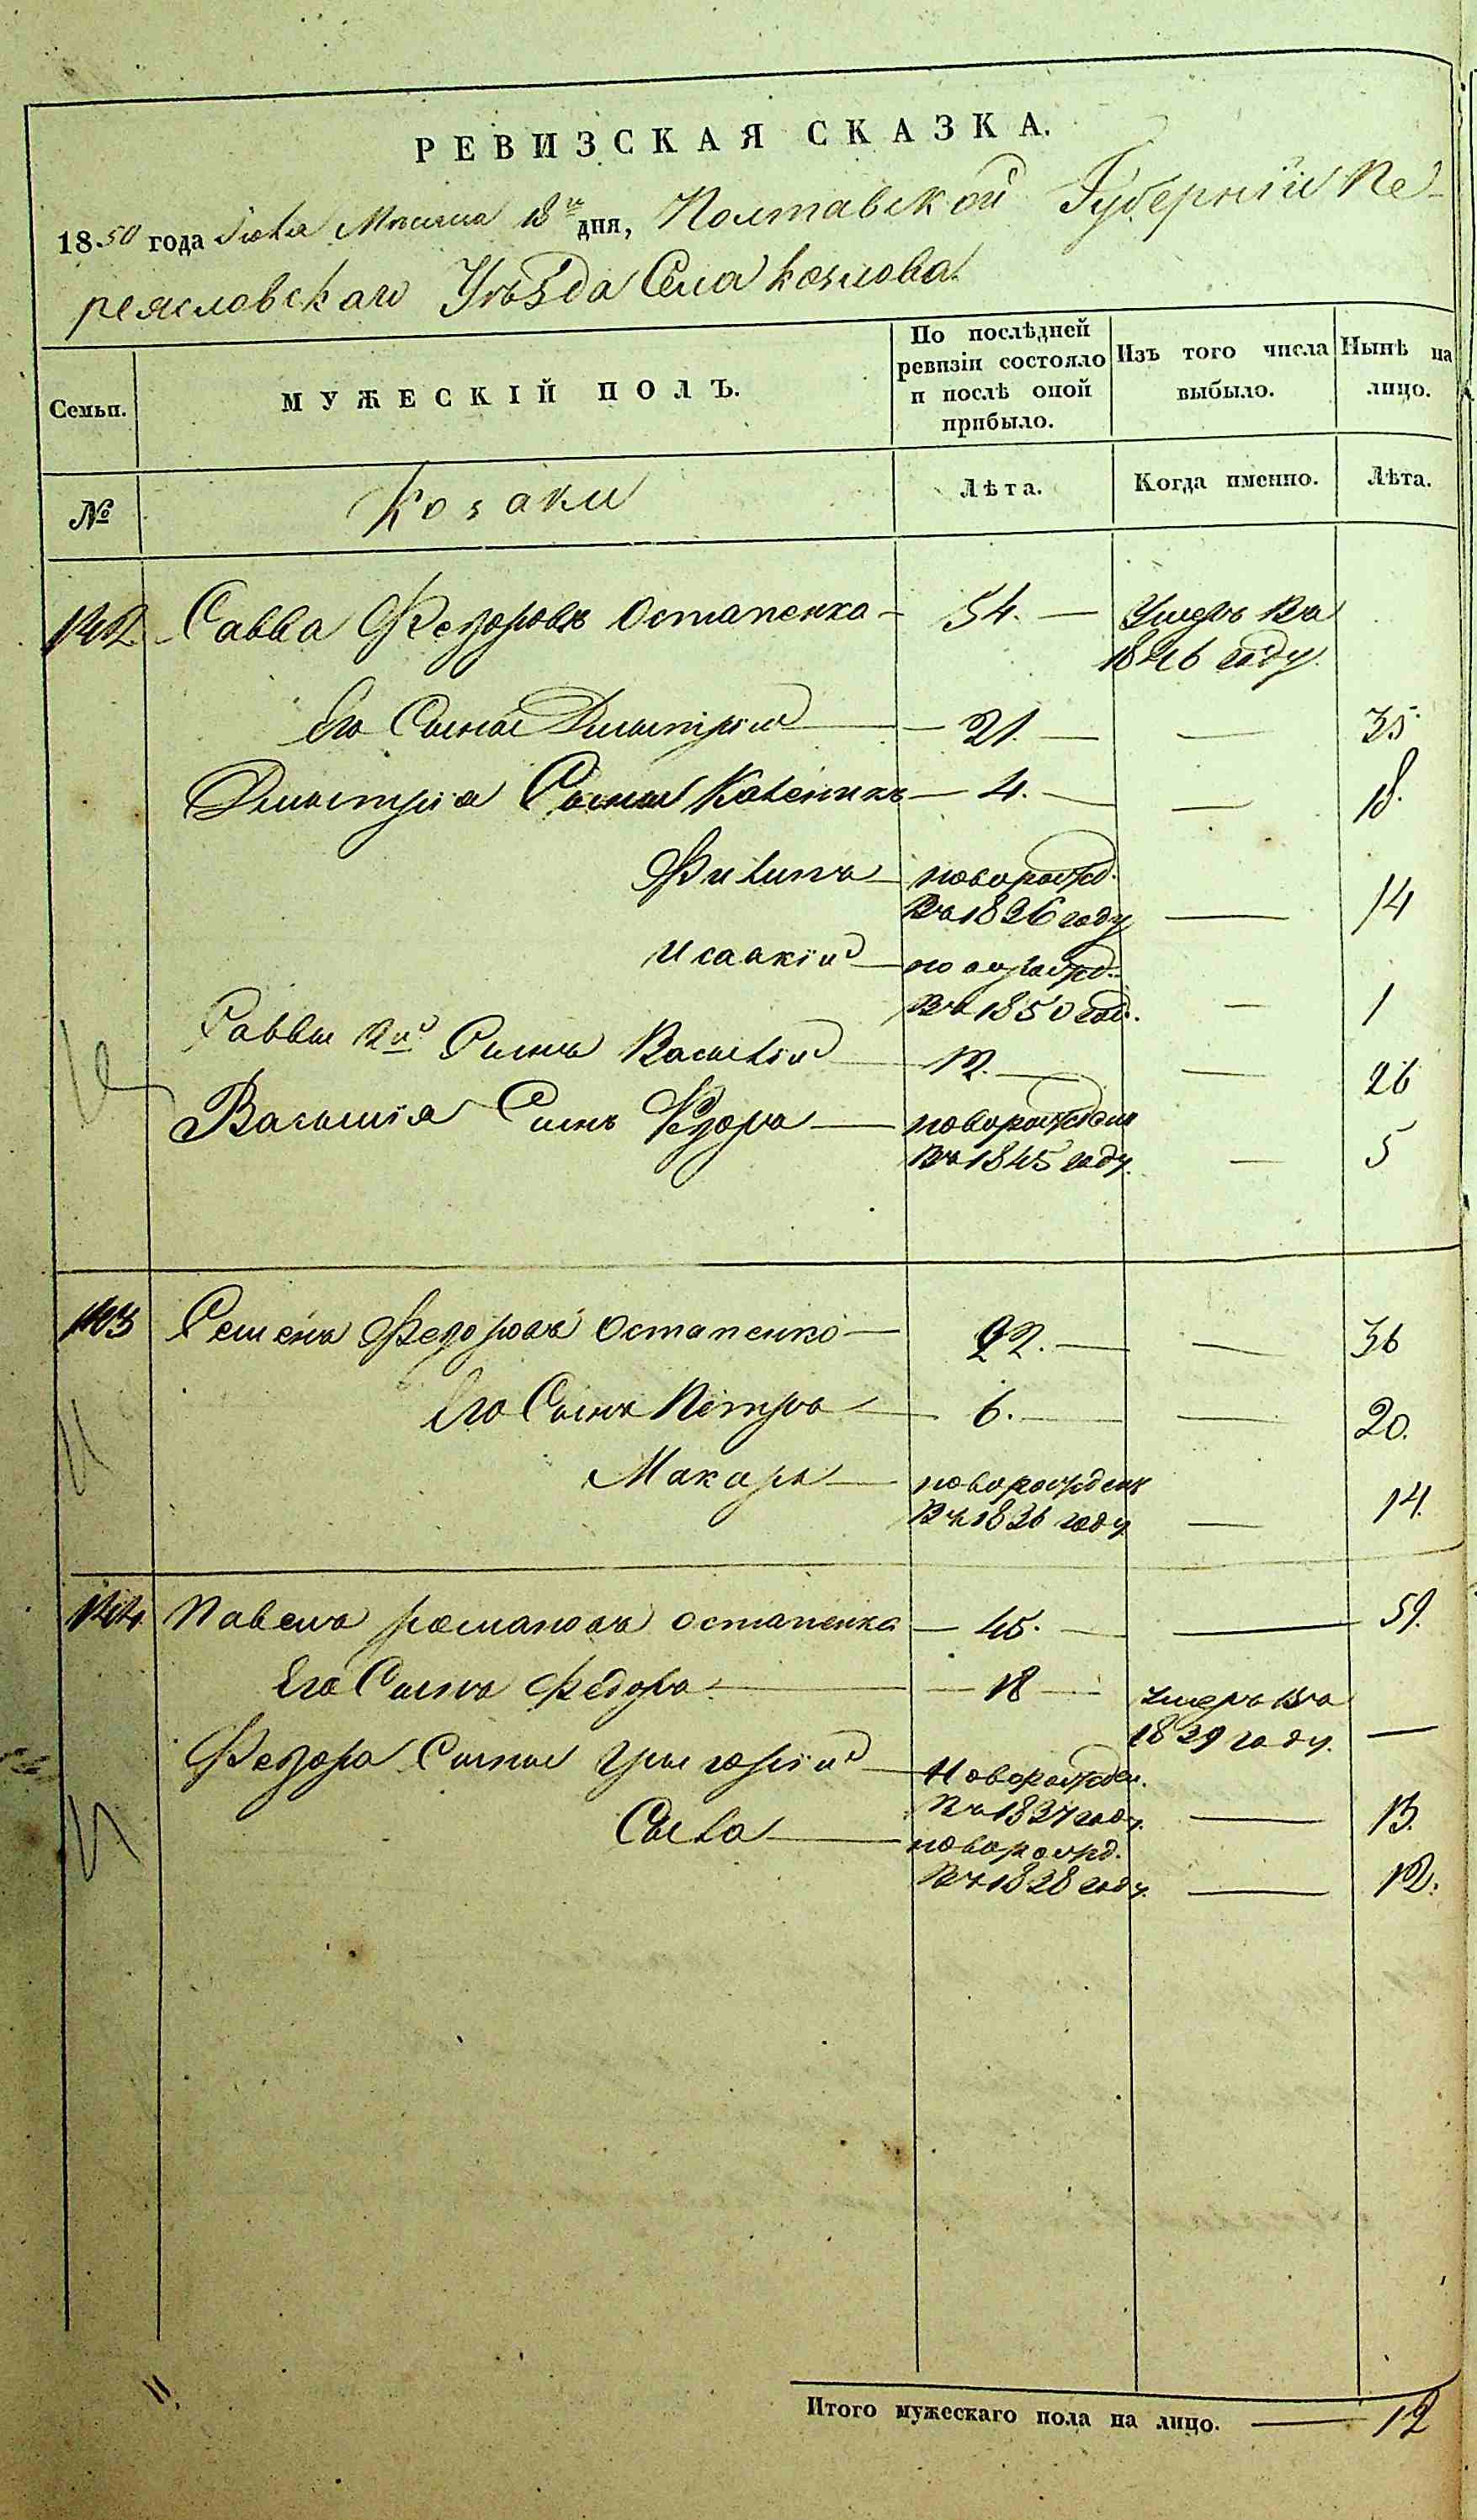 РЕВИЗСКАЯ СКАЗКА.
1850 года Июля Месяца 18го дня, Полтавской Губерніи Пе-
реясловскаго Уѣзда Села Козлова
Семьи.
МУЖЕСКІЙ ПОЛЪ.
По послѣдней ревизіи состояло и послѣ оной прибыло.
Изъ того числа выбыло.
Нынѣ на лицо.
№ Козаки Лѣта. Когда именно. Лѣта.
142 Савва Федоровъ Остапенко 54. Умеръ въ
1846 году.
Его Сынъ Дмитрій 21. 35
Дмитрія Сынъ Каленикъ 4. 18.
Филипъ новорожд.
въ 1836 году 14
Исаакій новорожд.
въ 1850 год. 1
Саввы 2й Сынъ Василій 12. 26
Василія Сынъ Федоръ новорожден
въ 1845 году. 5
143 Семенъ Федоровъ Остапенко 22. 36
Его Сынъ Петръ 6. 20.
Макаръ новорожденъ
въ 1836 году 14.
144 Павелъ Романовъ Остапенко 45. 59.
Его Сынъ Федоръ 18 умеръ въ
1839 году.
Федора Сынъ Григорій Новорожден.
въ 1837 году. 13.
Сава новорожд.
въ 1838 году. 12.
Итого мужескаго пола на лицо. 12